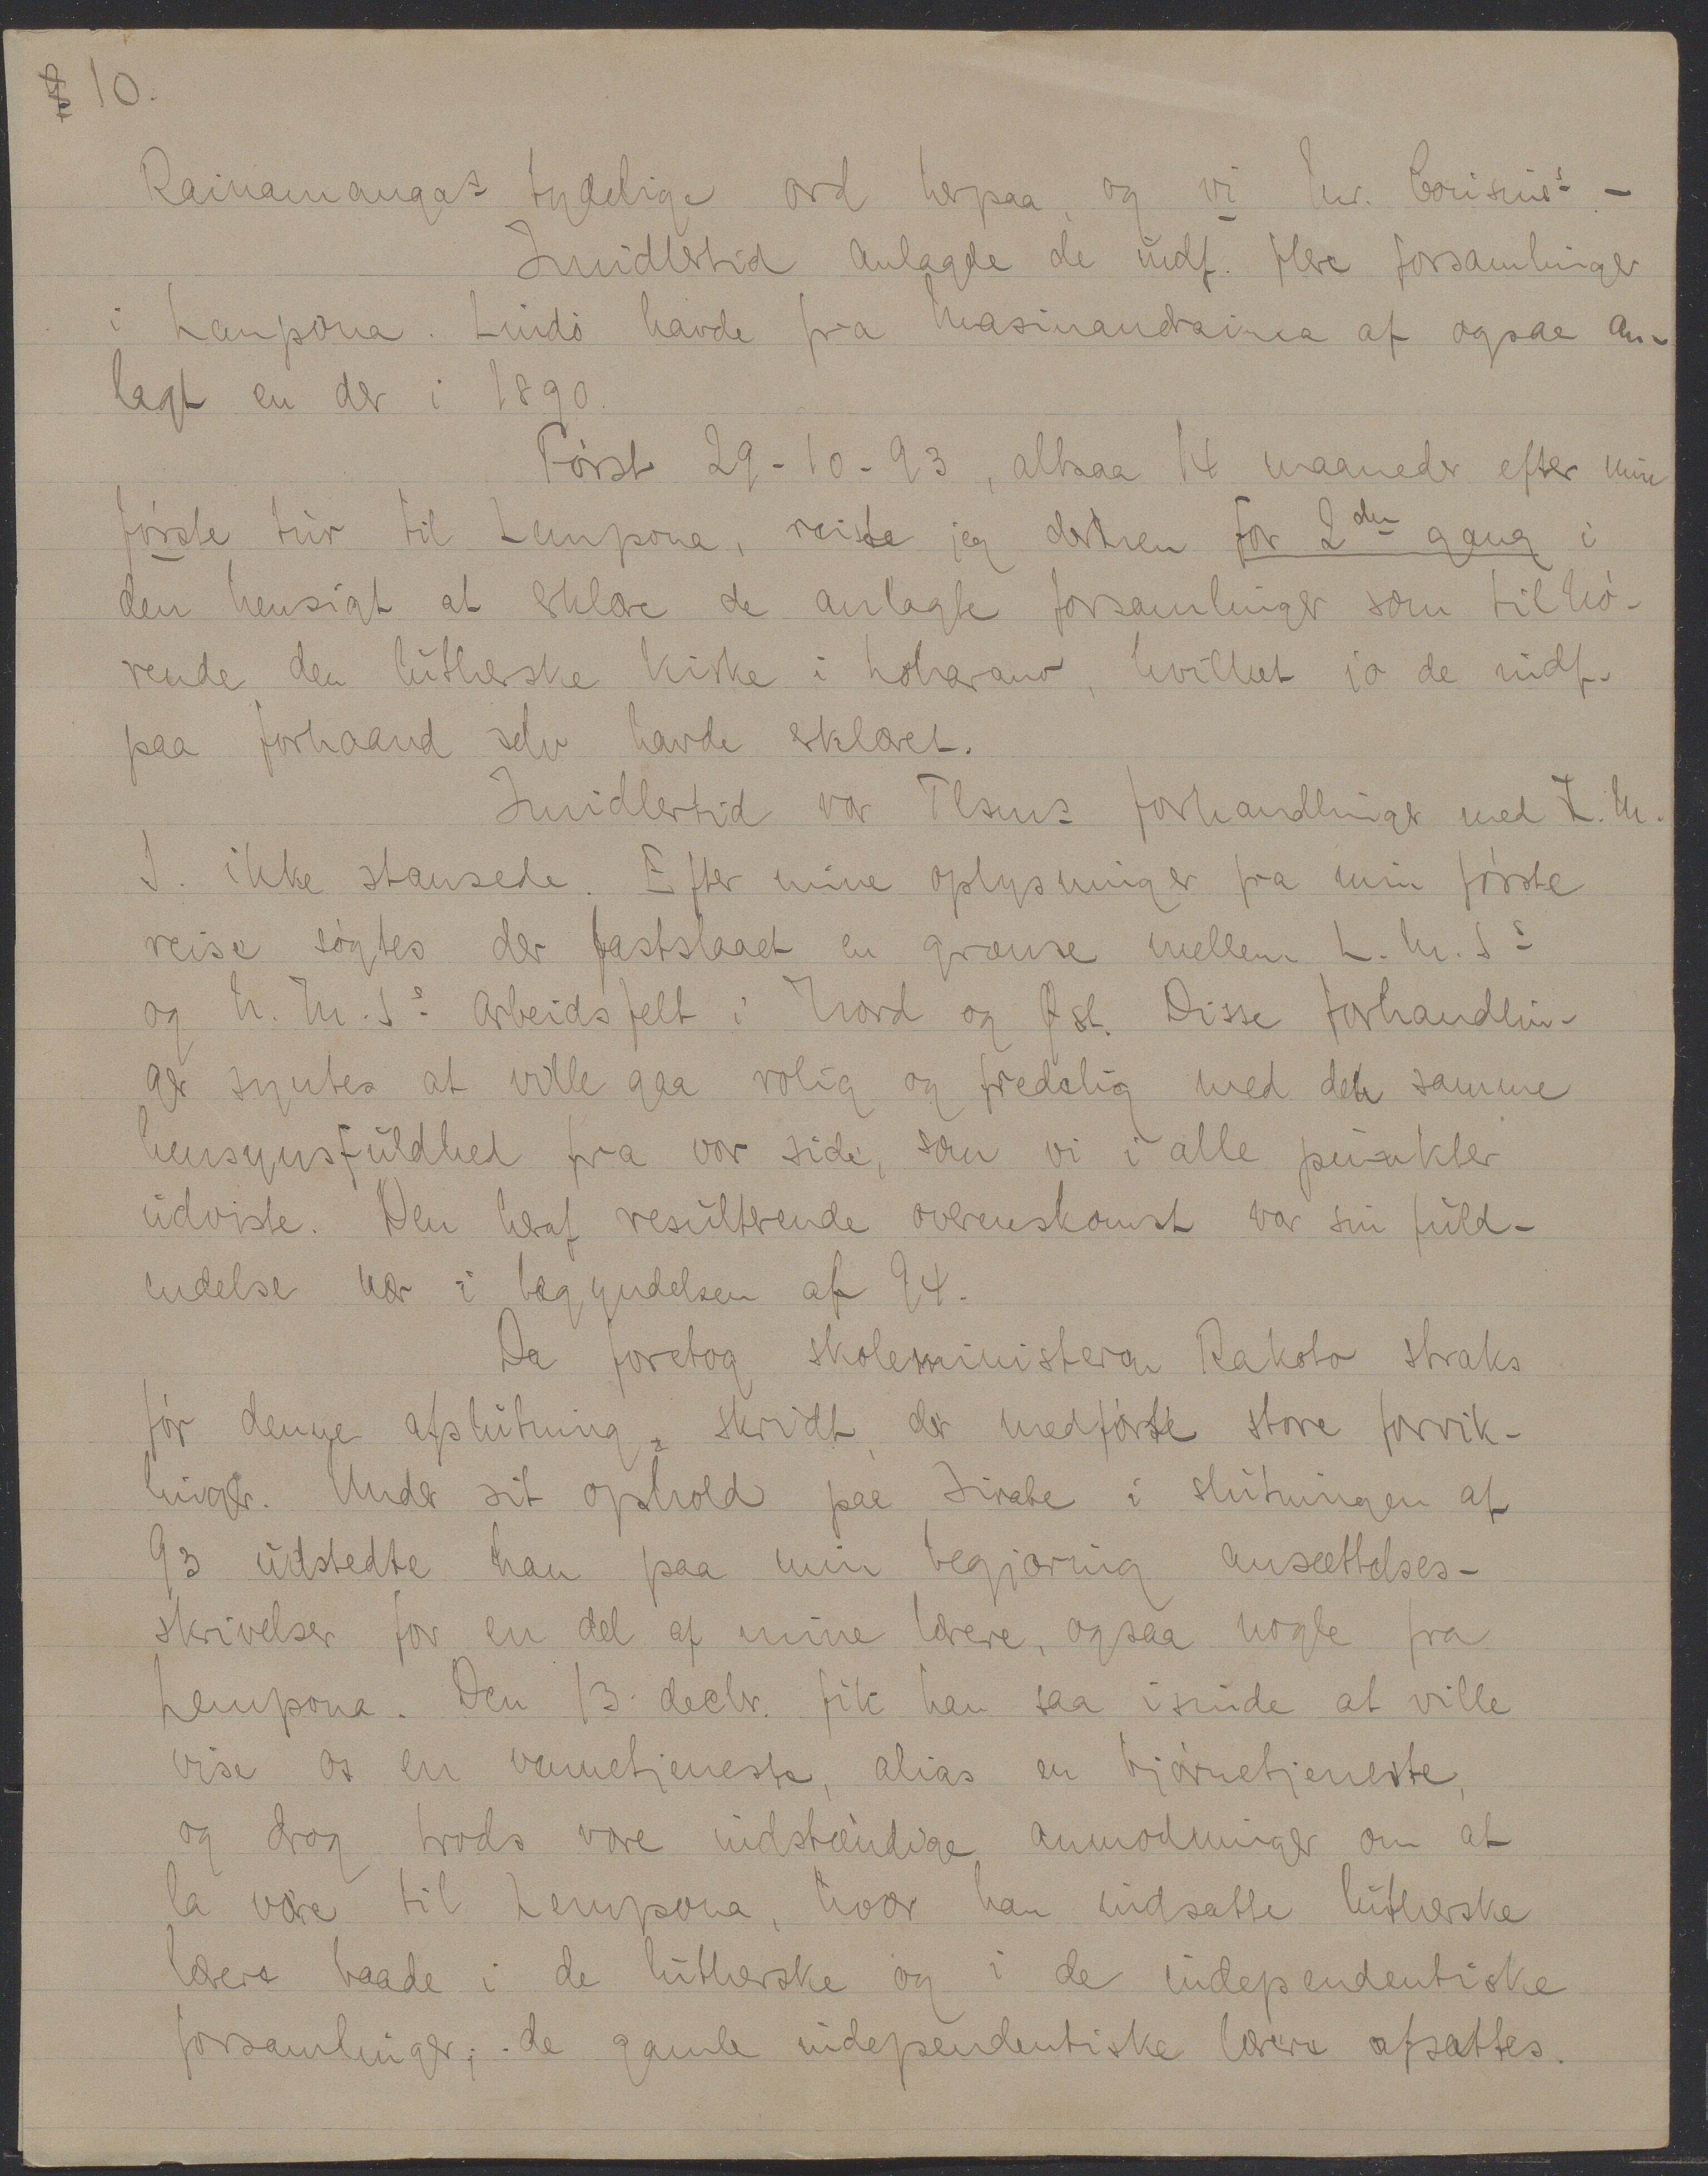 10.
Rainamangas tydelige ord herpaa, og vi Mr. Cousins. -
Imidlertid anlagde de indf. flere forsamlinger
i Lempona. Lindø havde fra Masinandraina af ogsaa an-
lagt en der i 1890.
Først 29-10-93, altsaa 14 maaneder efter min
første tur til Lempona, reiste jeg derhen for 2den gang i
den hensigt at erklære de anlagte forsamlinger som tilhø-
rende den lutherske kirke i Loharano, hvilket jo de indf.
paa forhaand selv havde erklæret.
Imidlertid var Tlsms forhandlinger med L. M.
S. ikke stansede. Efter mine oplysninger fra min første
reise søgtes der fastslaaet en grænse mellem L. M. Ss
og N. M. Ss arbeidsfelt i Nord og Øst. Disse forhandlin-
ger syntes at ville gaa rolig og fredelig med den samme
hensynsfuldhed fra vor side, som vi i alle punkter
udviste. Den heraf resulterende overenskomst var sin fuld-
endelse nær i begyndelsen af 94.
Da foretog skoleministeren Rakoto straks
før denne afslutning skridt, der medførte store forvik-
linger. Under sit ophold paa Sirabe i slutningen af
93 udstedte han paa min begjæring ansættelses-
skrivelser for en del af mine lærere, ogsaa nogle fra
Lempona. Den 13. decbr. fik han saa isinde at ville
vise os en vennetjeneste, alias en bjørnetjeneste,
og drog trods vore indstændige anmodninger om at
la være til Lempona, hvor han indsatte lutherske
lærere baade i de lutherske og i de independentiske
forsamlinger; de gamle independentiske lærere afsattes.